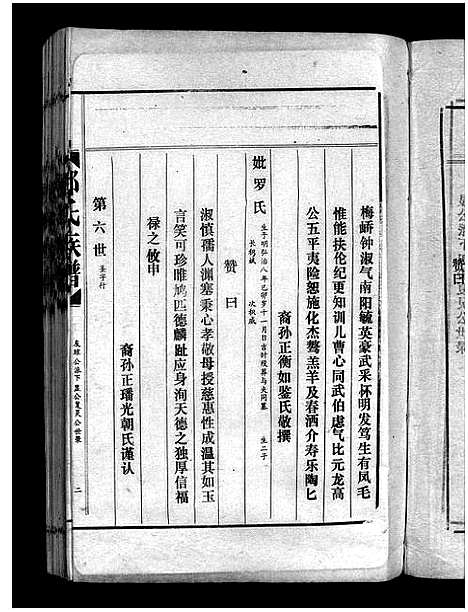 梅峤钟淑气南阳毓英豪武采怀明发笃生有凤毛
惟能扶伦纪更知训儿曹心同武伯虑气比元龙高
公五平夷险恕施化杰骜羔羊及春酒介寿乐陶匕
裔孙正衡如鉴氏敬撰
妣罗氏 生于明弘治八年乙卯岁十一月日吉时殁葬与夫同墓 生二子
长 次权威
赞曰
淑慎孺人渊塞秉心孝敬母授慈惠性成温其如玉
言笑可珍唯鸠匹德麟趾应身洵天德之独厚信福
禄之攸申
裔孙正璠光朝氏谨认
第六世 圣字行
邓氏族谱
公派下 公复灵公世系
二